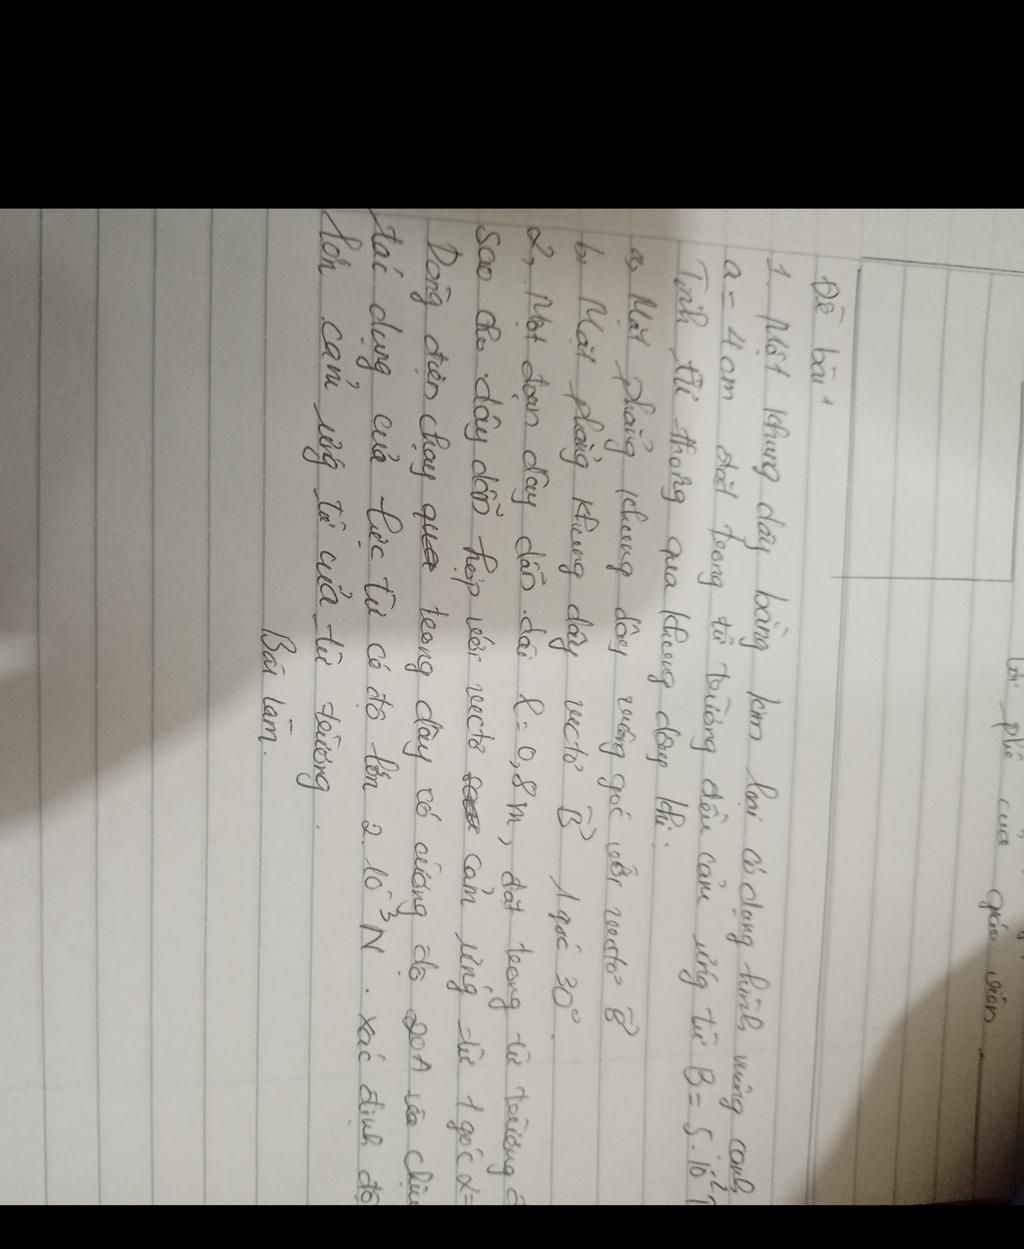 Lời phê của giáo viên
Đề bài
1. Một khung dây bằng kim loại có dạng hình vuông cạnh
a = 4cm đặt trong từ trường đều cảm ứng từ B = 5.10⁻²T
Tính từ thông qua khung dây khi.
a, Mặt phẳng khung dây vuông góc với vectơ B⃗
b, Mặt phẳng khung dây vectơ B⃗ 1 góc 30°.
2, Một đoạn dây dẫn dài l = 0,8m, đặt trong từ trường
sao cho dây dẫn hợp với vectơ cảm ứng từ 1 góc α =
Dòng điện chạy qua trong dây có cường độ 20A và chịu
tác dụng của lực từ có độ lớn 2.10⁻³N. xác định độ
lớn cảm ứng từ của từ trường.
Bài làm.